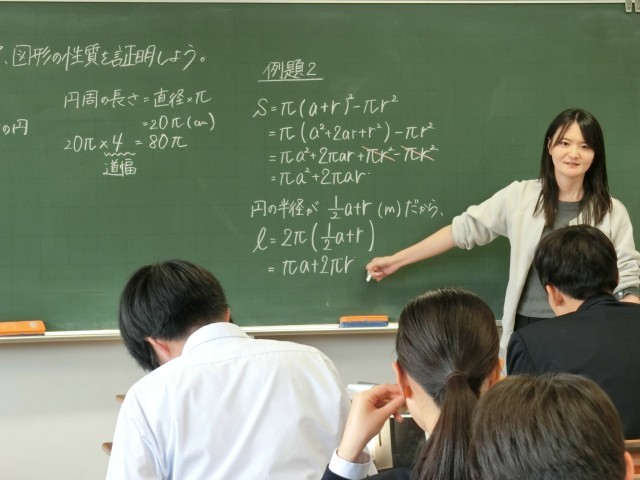 、図形の性質を証明しよう。
円周の長さ=直径×π
=20π(cm)
の円
20π×4=80π
道幅
例題2
S=π(a+r)²-πr²
=π(a²+2ar+r²)-πr²
=πa²+2πar+πr²-πr²
=πa²+2πar
円の半径が 1/2a+r (m)だから、
ℓ=2π(1/2a+r)
=πa+2πr